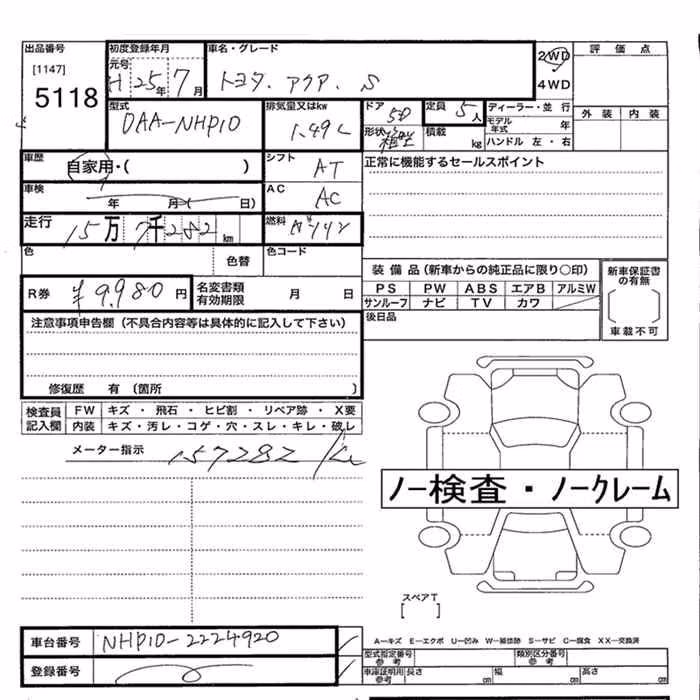 出品番号 初度登録年月 車名・グレード 評価点
[1147] 元号
5118 H 25年 7月 トヨタ. アクア. S 2WD
4WD
型式 排気量又はkw ドア 定員 ディーラー・並行 外装 内装
DAA-NHP10 1.49L 5D 5人 モデル年式 年
形状 箱型 積載 kg ハンドル 左・右
車歴 自家用・( ) シフト AT 正常に機能するセールスポイント
車検 年 月 日) AC AC
走行 15万7千282km 燃料 ガソリン
色 色替 色コード
装備品(新車からの純正品に限り○印) 新車保証書の有無
R券 ¥9,980円 名変書類有効期限 月 日 PS PW ABS エアB アルミW
サンルーフ ナビ TV カワ
後日品 車載不可
注意事項申告欄(不具合内容等は具体的に記入して下さい)
修復歴 有 (箇所 )
検査員記入欄 FW キズ・飛石・ヒビ割・リペア跡・X要
内装 キズ・汚レ・コゲ・穴・スレ・キレ・破レ
メーター指示 157282 km
ノー検査・ノークレーム
スペアT
[ ]
車台番号 NHP10-2224920
A−キズ E−エクボ U−凹み W−補修跡 S−サビ C−腐食 XX−交換済
登録番号
型式指定番号 参考 類別区分番号 参考
車庫証明用 参考 長さ cm 幅 cm 高さ cm